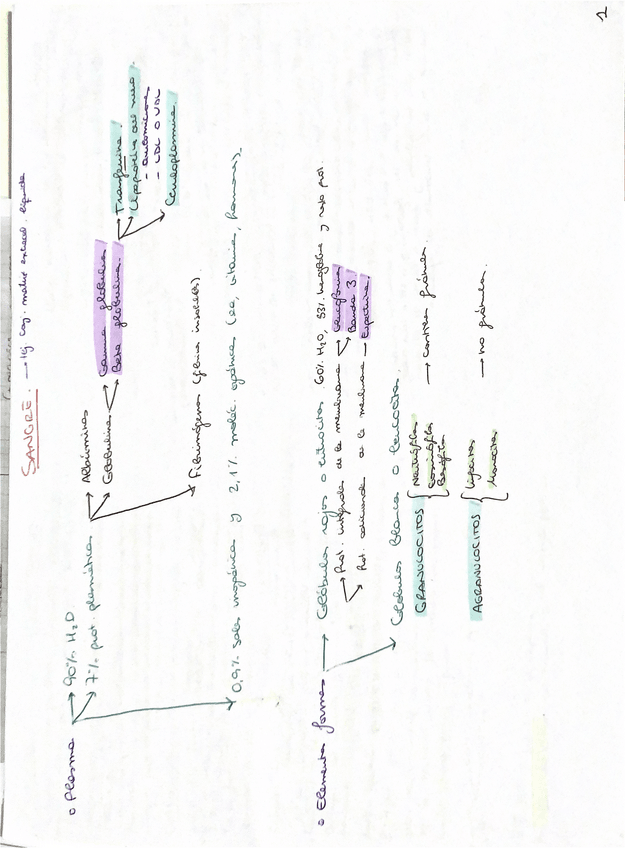 1
SANGRE. → tej. conj. matriz extracel. líquida
o Plasma → 90% H2O
→ 7% prot. plasmáticas → Albúminas
→ Globulinas → Gamma globulina
→ Beta globulina. → Transferrina.
→ Lipoproteína del suero.
- quilomicrones
- LDL o VLDL
→ Ceruloplasmina.
→ Fibrinógenos (fibrina insoluble).
→ 0,9% sales inorgánicas y 2,1% moléc. orgánicas (aa, vitaminas, hormonas).
o Elementos formes → Glóbulos rojos o eritrocitos. 60% H2O, 33% hemoglobina y resto prot.
→ Prot. integrales de la membrana → Glucoforina
→ Banda 3
→ Prot. adicional a la membrana → Espectrina.
→ Glóbulos blancos o leucocitos.
GRANULOCITOS { Neutrófilos
Eosinófilos
Basófilos
→ contienen gránulos.
AGRANULOCITOS { Linfocitos
Monocitos
→ no gránulos.